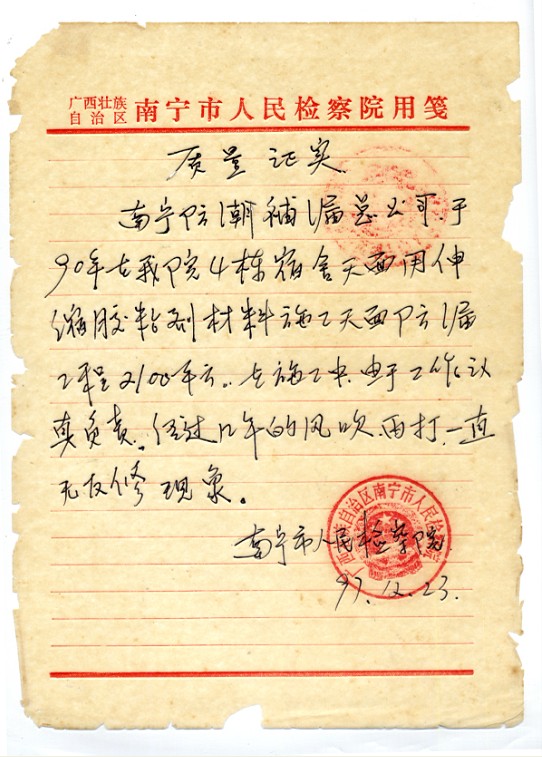 广西壮族
自治区 南宁市人民检察院用笺
质量证实
南宁防潮补漏总公司.于
90年在我院4栋宿舍天面用伸
缩胶粘剂材料施工天面防漏
工程2100平方。在施工中.由于工作认
真负责.经过几年的风吹.雨打.一直
无返修现象。
南宁市人民检察院
97.12.23.
广西壮族自治区南宁市人民检察院